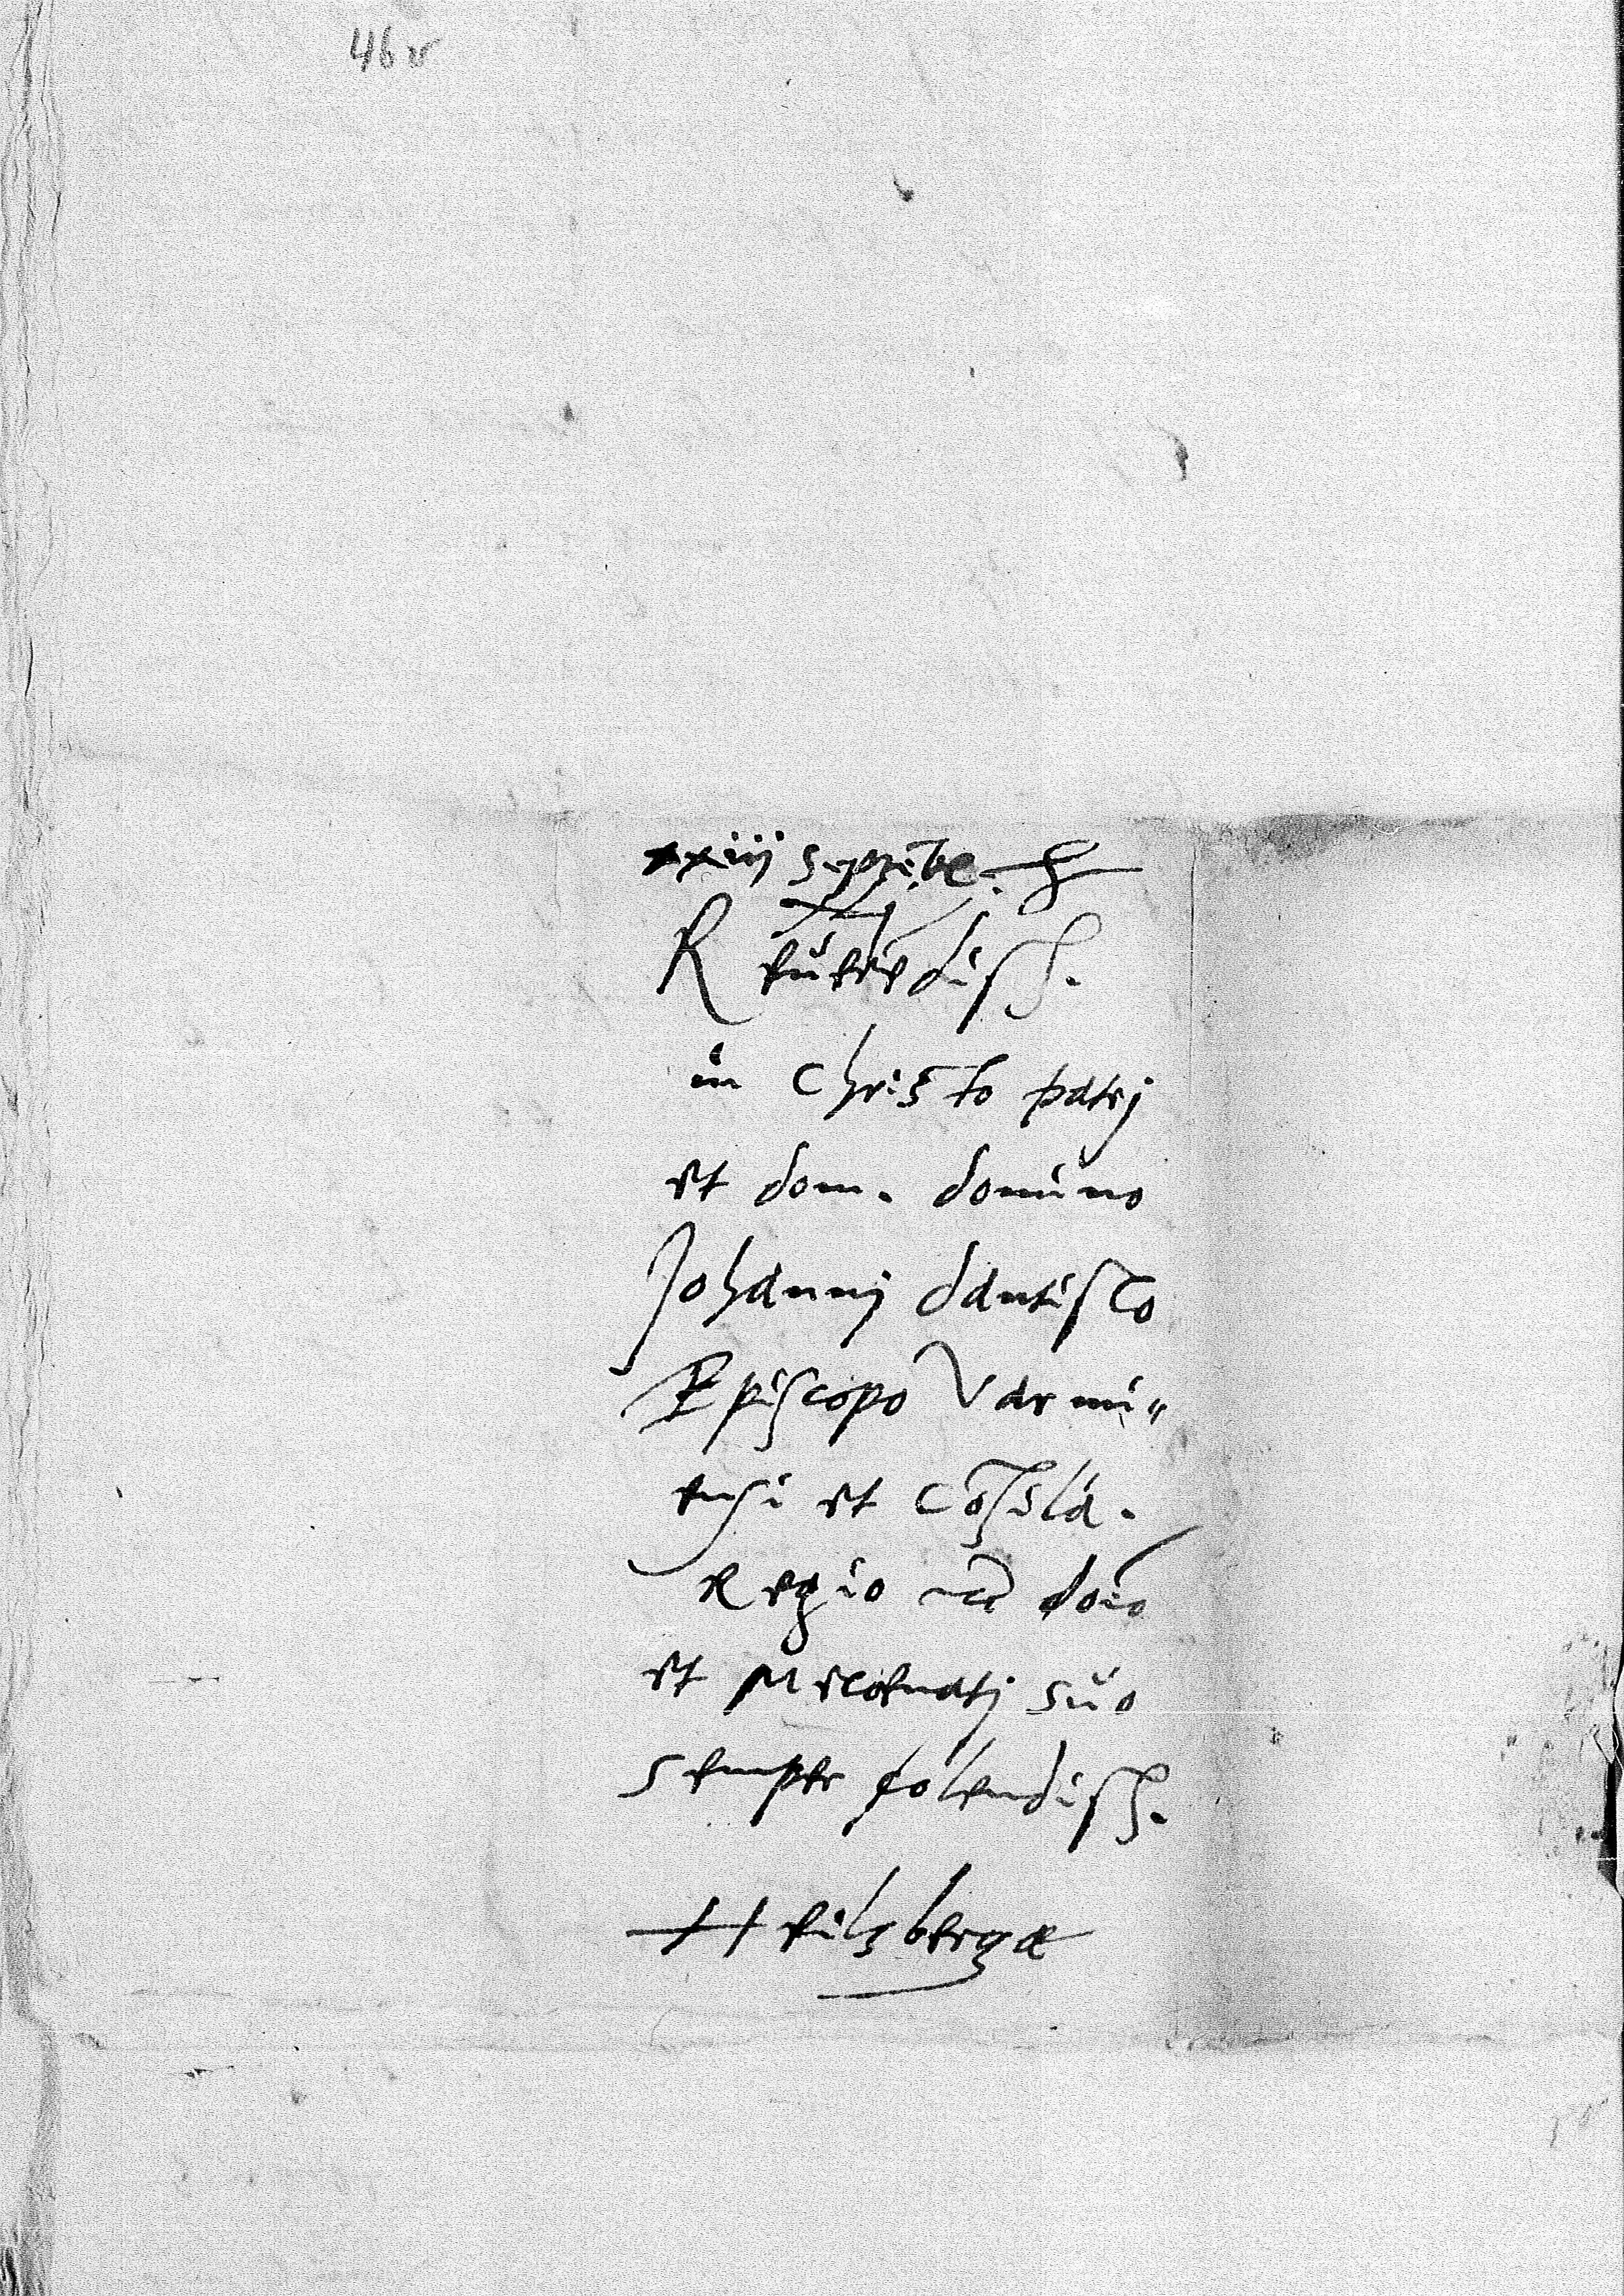 46v
xxiij Septēbr.
Reuerēdiss.
in Christo patrj
et dom. domino
Johannj dantisco
Episcopo Varmi"
ensi et Cōsilia.
Regio dōio
et Mecoenatj suo
semper colendiss.
Heilsbergæ